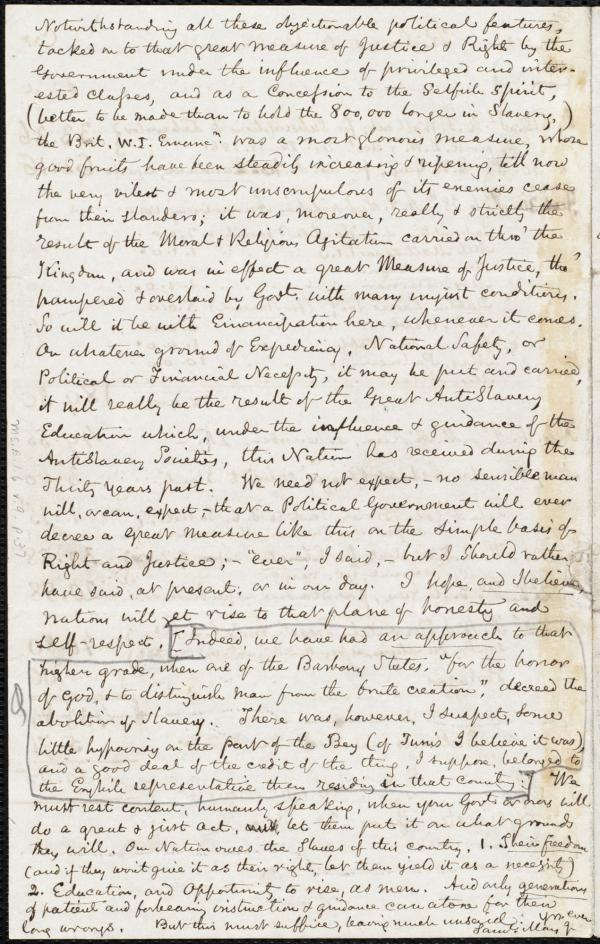 Notwithstanding all these objectionable political features,
tacked on to that great measure of Justice & Right by the
Government under the influence of privileged and inter-
ested classes, and as a Concession to the Selfish Spirit,
(better to be made than to hold the 800,000 longer in Slavery,)
the Brit. W.I. Emancn. was a most glorious measure, whose
good fruits have been steadily increasing & ripening, till now
the very vilest & most unscrupulous of its enemies cease
from their slanders; it was, moreover, really & strictly the
result of the Moral & Religious Agitation carried on thro' the
Kingdom, and was in effect a great Measure of Justice, tho'
pampered & overlaid by Govt. with many unjust conditions.
So will it be with Emancipation here, whenever it comes.
On whatever ground of Expediency, National Safety, or
Political or Financial Necessity, it may be put and carried,
it will really be the result of the Great AntiSlavery
Education which, under the influence & guidance of the
AntiSlavery Societies, this Nation has received during the
Thirty Years past. We need not expect, - no sensible man
will, or can, expect, - that a Political Government will ever
decree a Great Measure like this on the simple basis of
Right and Justice; - "ever", I said, - but I should rather
have said, at present, or in our day. I hope, and I believe,
nations will yet rise to that plane of honesty and
self-respect. [Indeed, we have had an approach to that
higher grade, when one of the Barbary States, "for the honor
of God, & to distinguish man from the brute creation", decreed the
abolition of Slavery. There was, however, I suspect, some
little hypocrisy on the part of the Bey (of Tunis I believe it was),
and a good deal of the credit of the thing, I suppose, belonged to
the English representative then residing in that country.] We
must rest content, humanly speaking, when your Govt. or ours will
do a great & just act, let them put it on what grounds
they will. Our Nation owes the Slaves of this country, 1. Their freedom
(and if they won't give it as their right, let them yield it as a necessity)
2. Education, and Opportunity to rise, as men. And only generations
of patient and forbearing instruction & guidance can atone for their
long wrongs. But this must suffice, leaving much unsaid. Yrs. ever
Saml. May Jr.